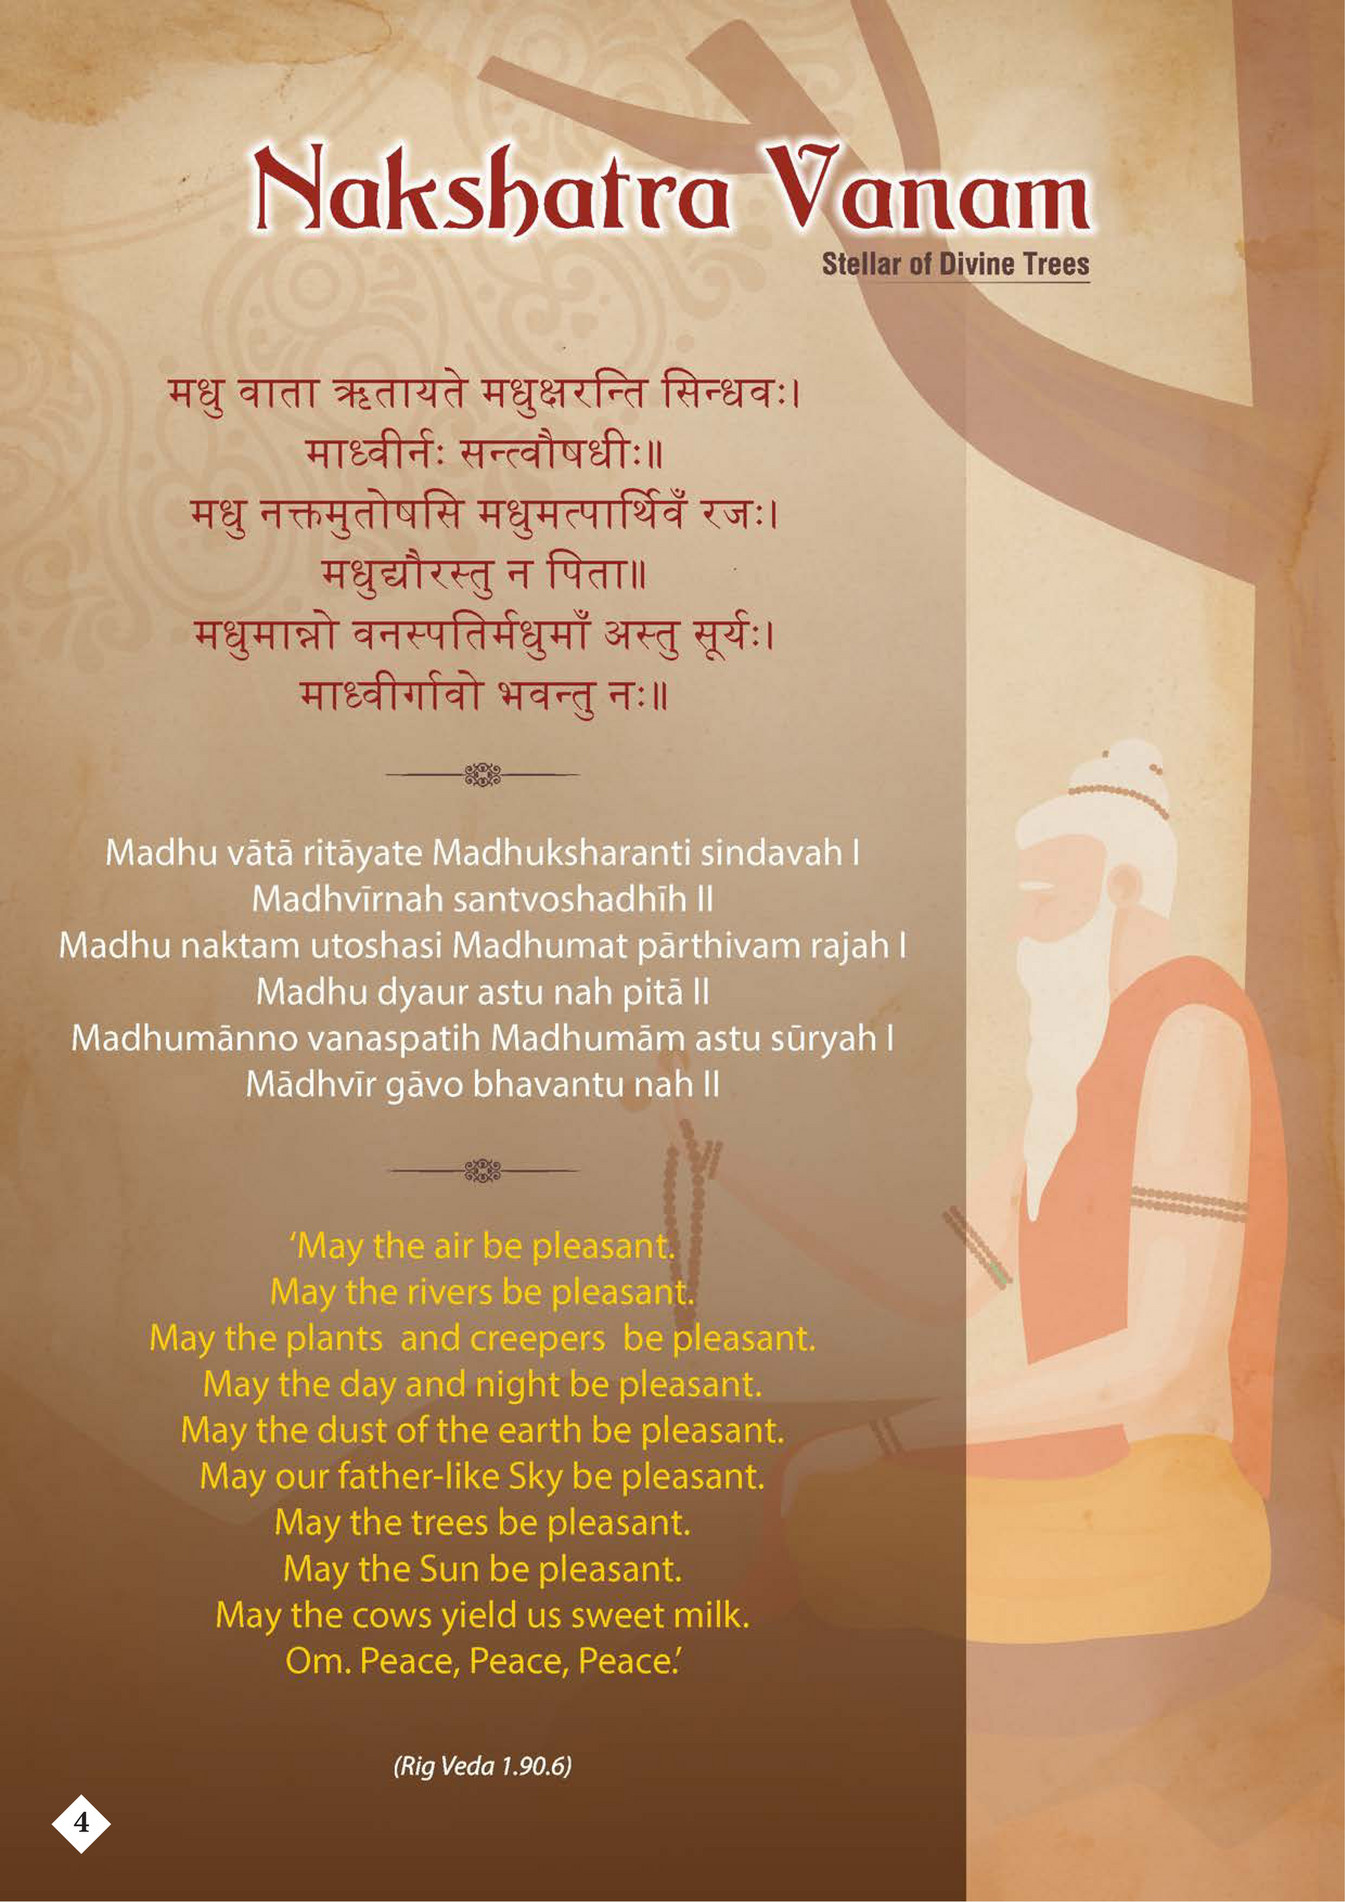 Nakshatra Vanam
Stellar of Divine Trees
मधु वाता ऋतायते मधुक्षरन्ति सिन्धवः।
माध्वीर्नः सन्त्वौषधीः॥
मधु नक्तमुतोषसि मधुमत्पार्थिवँ रजः।
मधुद्यौरस्तु न पिता॥
मधुमान्नो वनस्पतिर्मधुमाँ अस्तु सूर्यः।
माध्वीर्गावो भवन्तु नः॥
Madhu vātā ritāyate Madhuksharanti sindavah I
Madhvīrnah santvoshadhīh II
Madhu naktam utoshasi Madhumat pārthivam rajah I
Madhu dyaur astu nah pitā II
Madhumānno vanaspatih Madhumām astu sūryah I
Mādhvīr gāvo bhavantu nah II
‘May the air be pleasant.
May the rivers be pleasant.
May the plants and creepers be pleasant.
May the day and night be pleasant.
May the dust of the earth be pleasant.
May our father-like Sky be pleasant.
May the trees be pleasant.
May the Sun be pleasant.
May the cows yield us sweet milk.
Om. Peace, Peace, Peace.’
(Rig Veda 1.90.6)
4